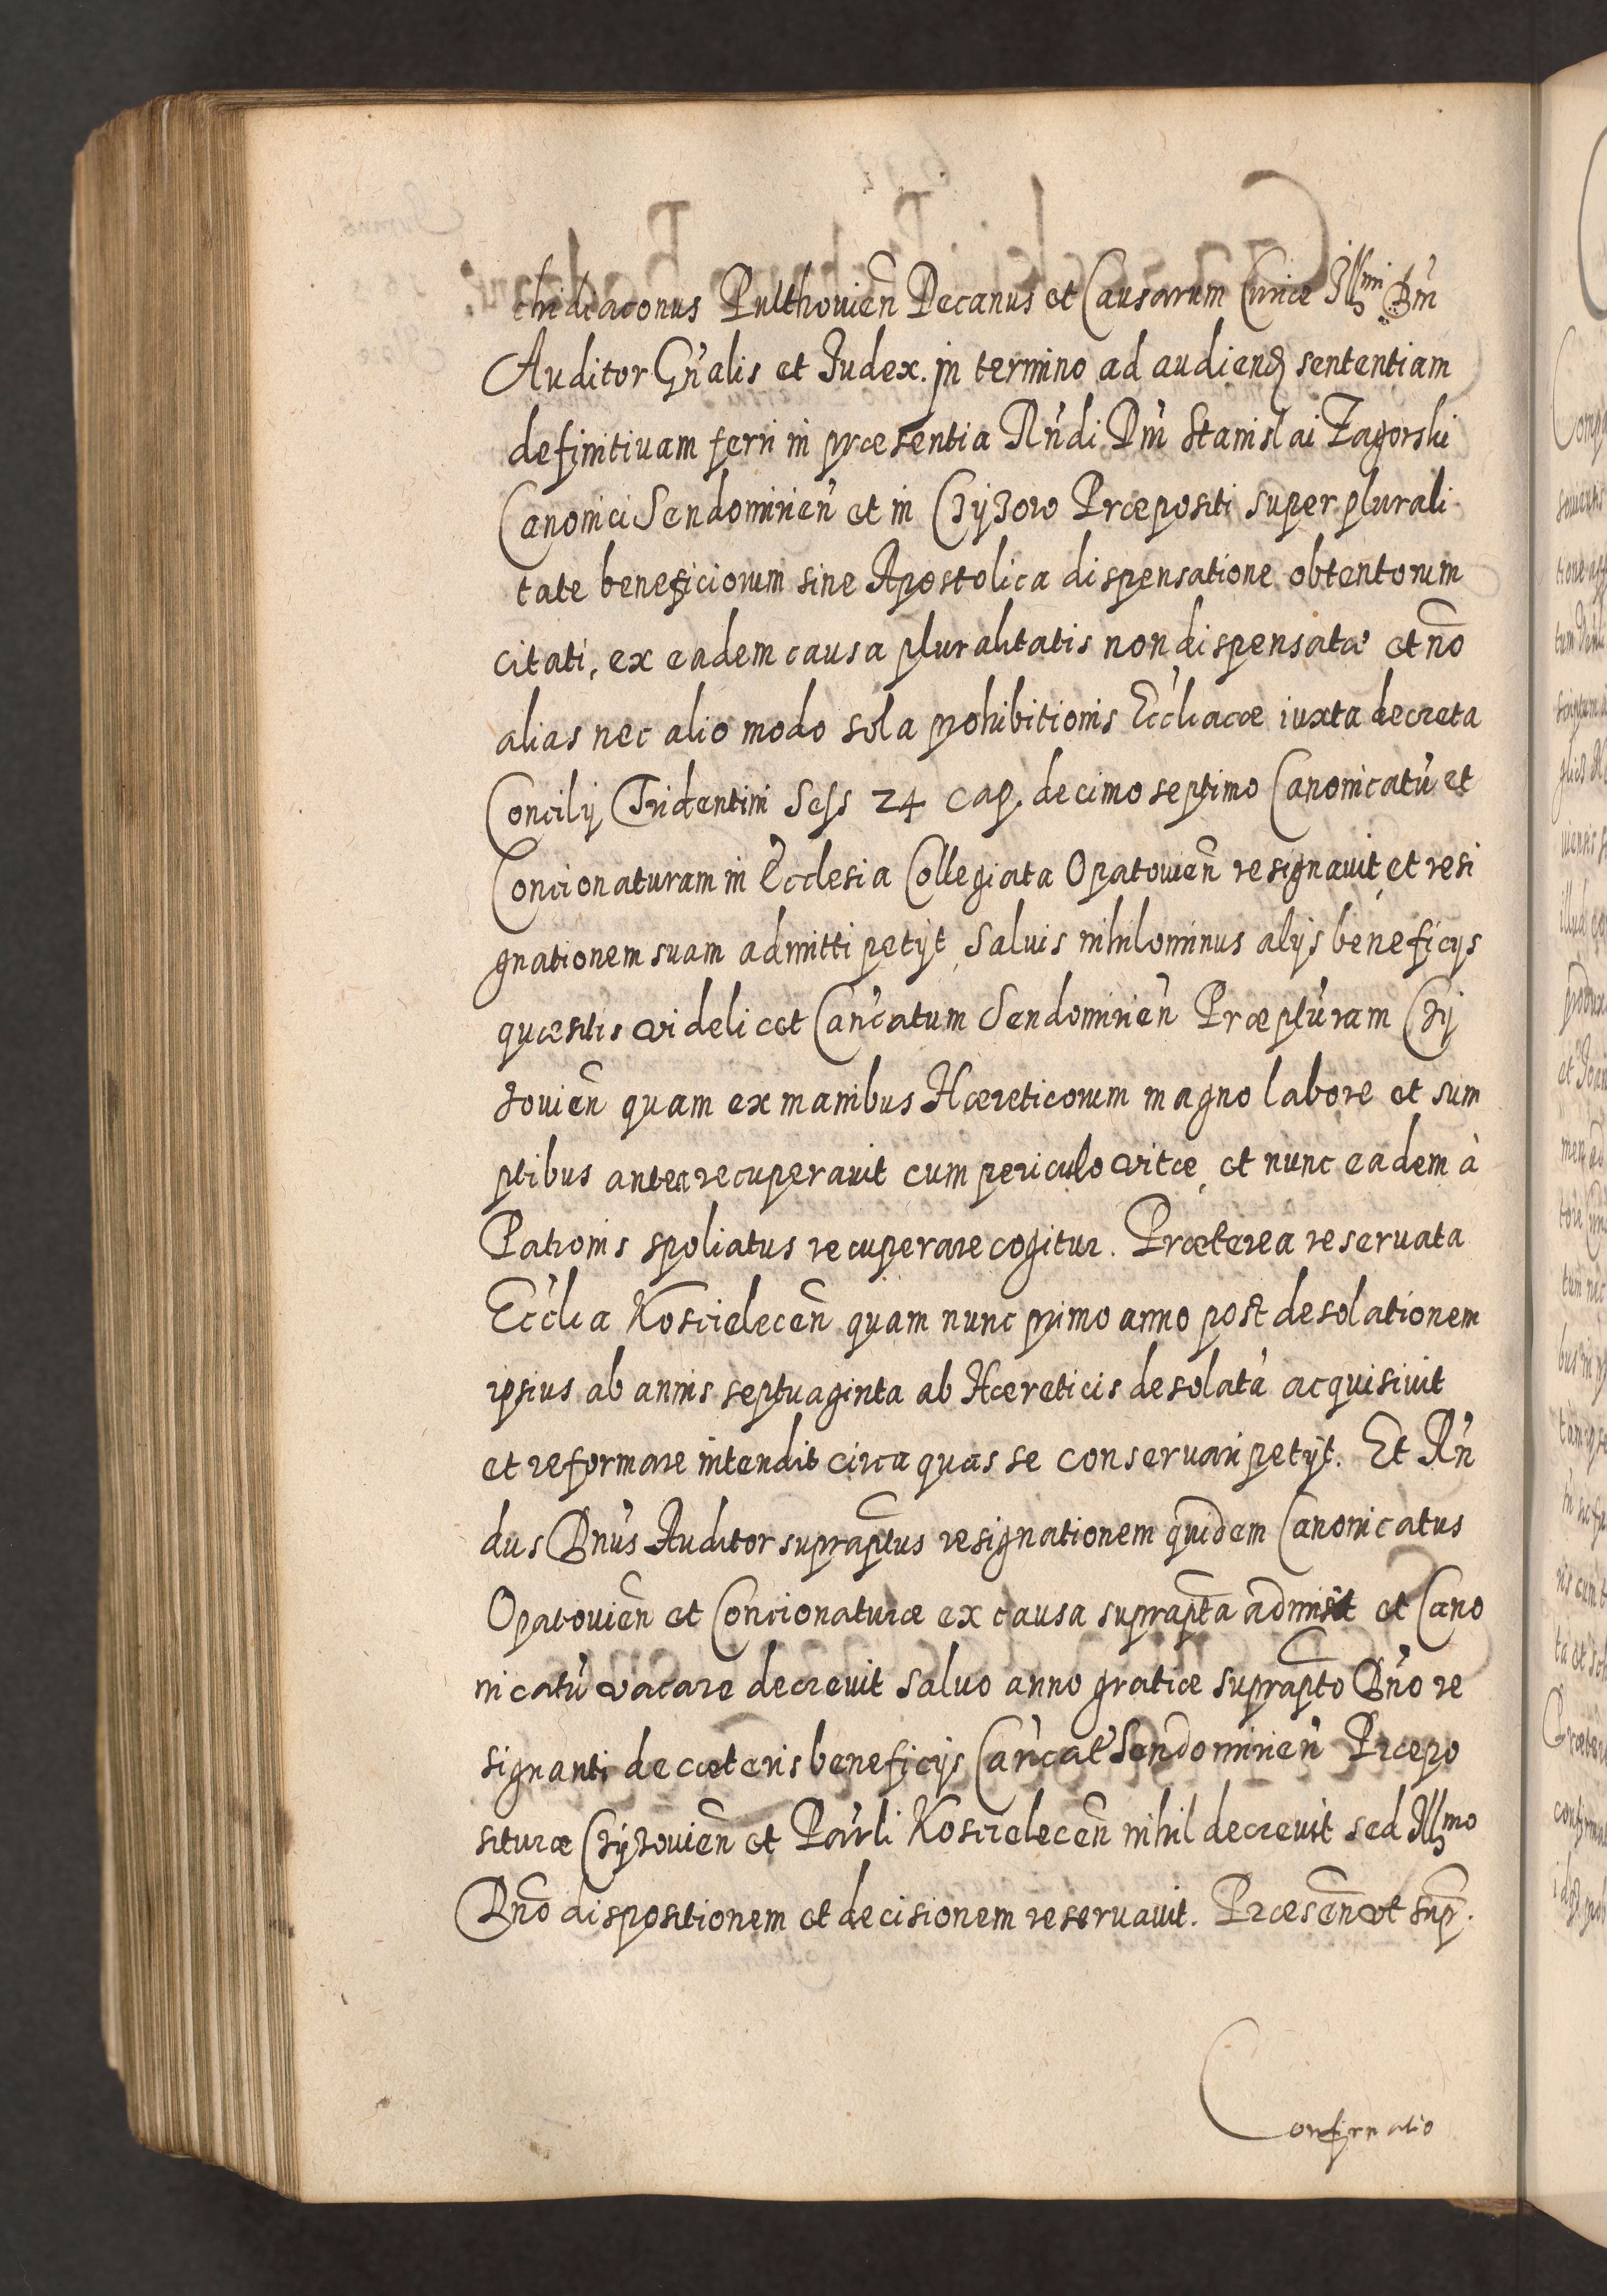 chidiaconus Pulthovien̄ Decanus et Causarum Curiæ Ill̄mi Dn̄i
Auditor Gn̄alis et Iudex. in termino ad audiend sententiam
definitiuam ferri in præsentia Rn̄di Dn̄i Stanislai Zagorski
Canonici Sendomirien̄ et in Czyżow Præpositi super plurali
tate beneficiorum sine Apostolica dispensatione obtentorum
citati, ex eadem causa pluralitatis non dispensatæ et nō
alias nec alio modo sola prohibitionis Eccl̄iacæ iuxta decreta
Concilij Tridentini Sess 24 cap. decimo septimo Canonicatū et
Concionaturam in Ecclesia Collegiata Opatovien̄ resignauit et resi
gnationem suam admitti petijt, Saluis nihilominus alijs beneficijs
quæsitis videlicet Can̄catum Sendomirien̄ Præpturam Czy
zouien̄ quam ex manibus Hæreticorum magno labore et sum
ptibus antea recuperauit cum periculo vitæ, et nunc eadem à
Patronis spoliatus recuperare cogitur. Præterea reseruata
Eccl̄ia Koscielecen̄ quam nunc primo anno post desolationem
ipsius ab annis septuaginta ab Hæreticis desolatā acquisiuit
et reformare intendit circa quas se conseruari petijt. Et Rn̄
dus Dn̄us Auditor supraptus resignationem quidem Canonicatus
Opatouien̄ et Concionaturæ ex causa suprapta admisit et Cano
nicatū vacare decreuit saluo anno gratiæ suprapto Dn̄o re
signanti de cæteris beneficijs Can̄cat Sendomirien̄ Præpo
situræ Czyżouien̄ et Par̄li Koscielecen̄ nihil decreuit sed Ill̄mo
Dn̄o dispositionem et decisionem reseruauit. Præsen̄ ut supr.
Confirmatio